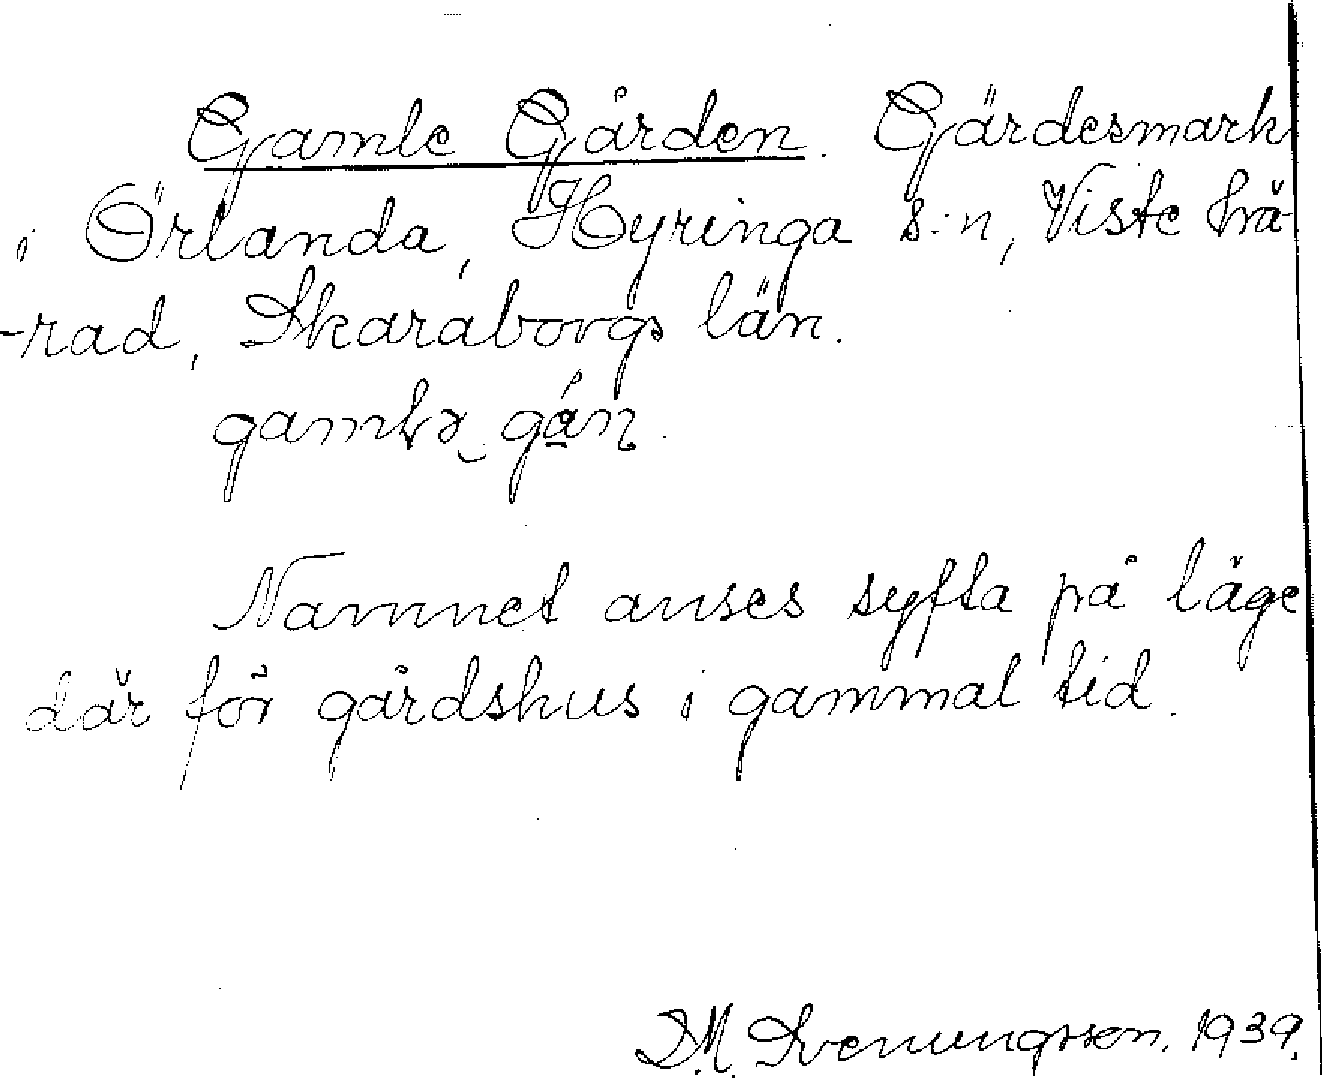 Gamle Gården. Gärdesmark
i Örlanda, Hyringa s:n, Viste hä-
-rad, Skaraborgs län.
gamlə gán.
Namnet anses syfta på läge
där för gårdshus i gammal tid.
S.M. Svenungsson. 1939.